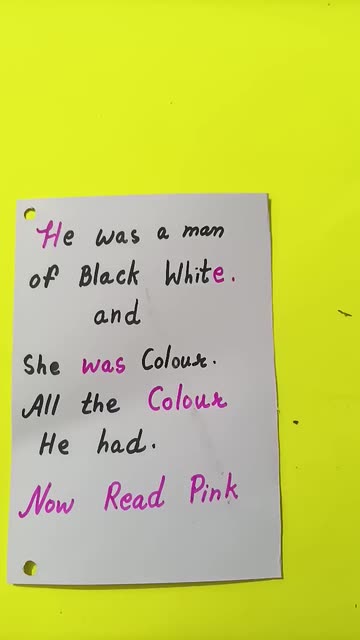 He was a man
of Black White.
and
She was Colour.
All the Colour
He had.
Now Read Pink